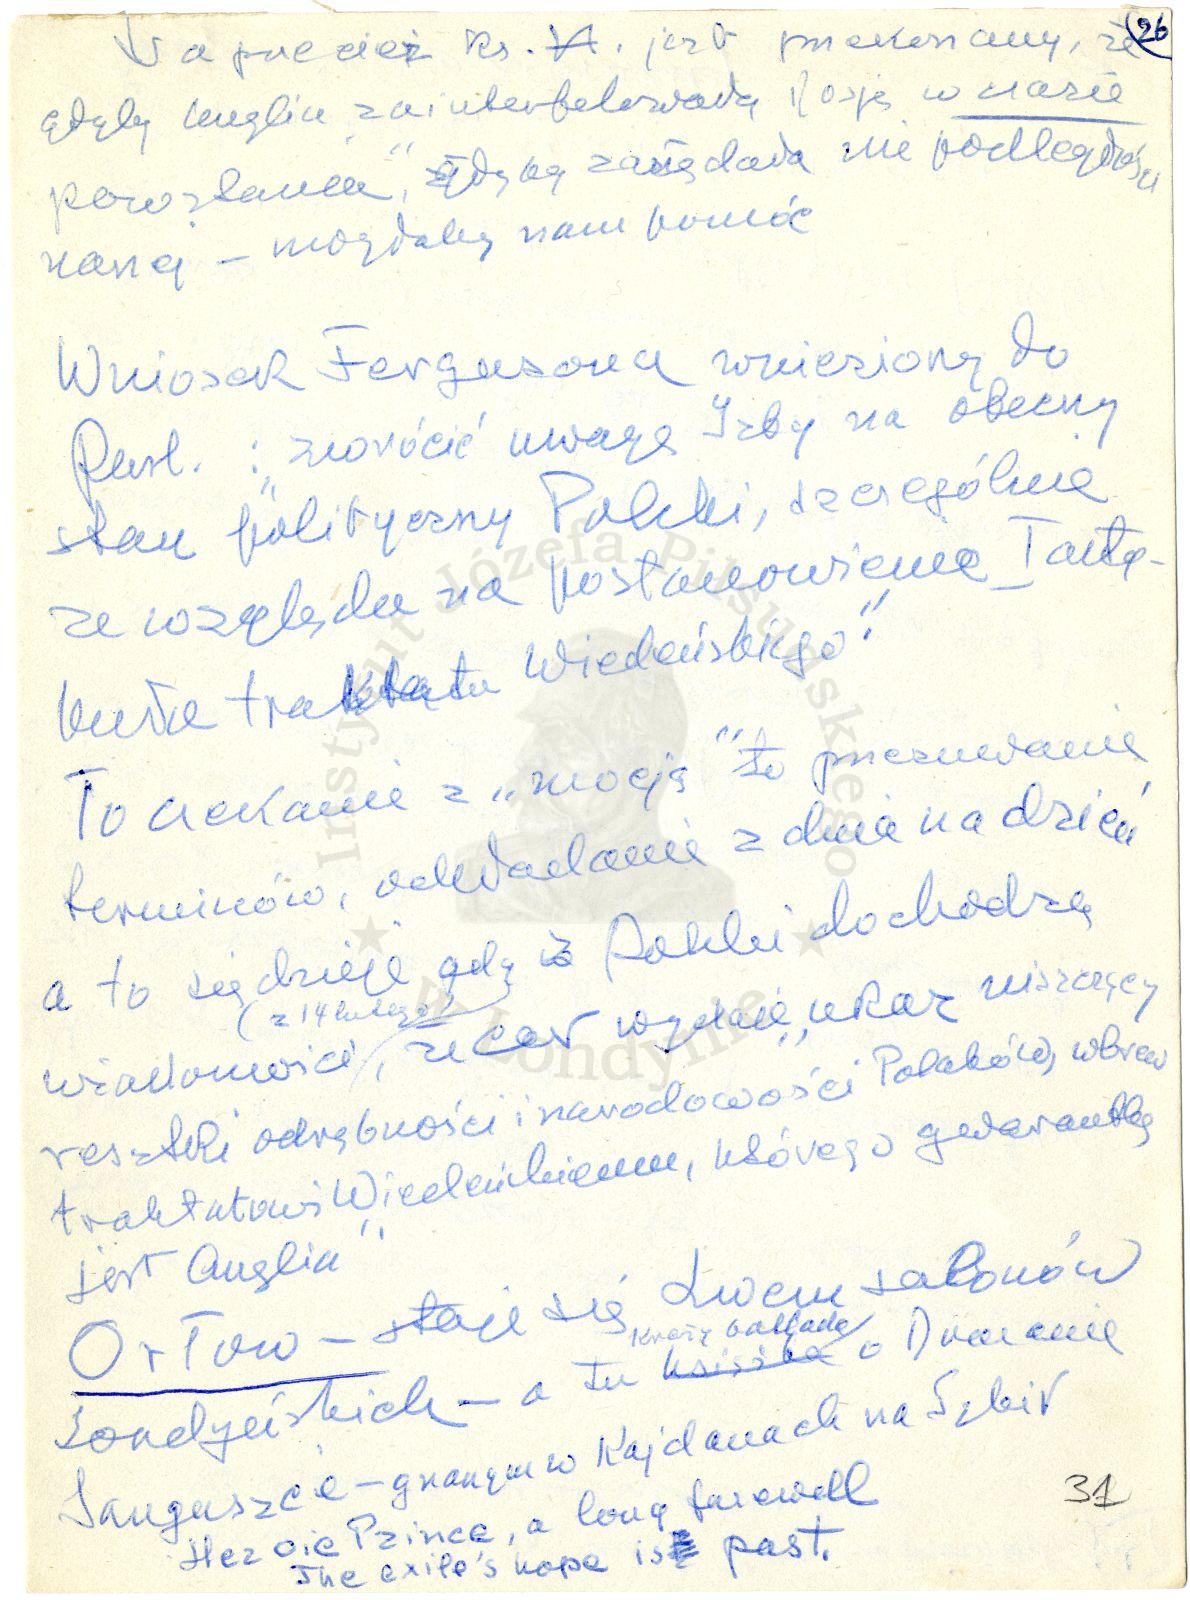 26
A przecież ks. A. jest przekonany, że
gdyby Anglia "zainterpelowała Rosję w czasie
powstania", gdyby zażądała niepodległości
naszej – mogłaby nam pomóc
Wniosek Fergusona wniesiony do
Parl. : "zwrócić uwagę Izby na obecny
stan polityczny Polski, szczególnie
ze względu na postanowienie I arty-
kułu traktatu Wiedeńskiego".
To czekanie z "mocją" to przesuwanie
terminów, odkładanie z dnia na dzień
a to się dzieje gdy z Polski dochodzą
(z 14 lutego)
wiadomości, że car wydał "ukaz niszczący
resztki odrębności i narodowości Polaków, wbrew
traktatowi Wiedeńskiemu, którego gwarantką
jest Anglia"
Orłow – staje się lwem salonów
krąży ballada
londyńskich – a tu książka o Romanie
Sanguszce – gnanym w Kajdanach na Sybir
Heroic Prince, a long farewell
The exile's hope is past.
31
Instytut Józefa Piłsudskiego
w Londynie